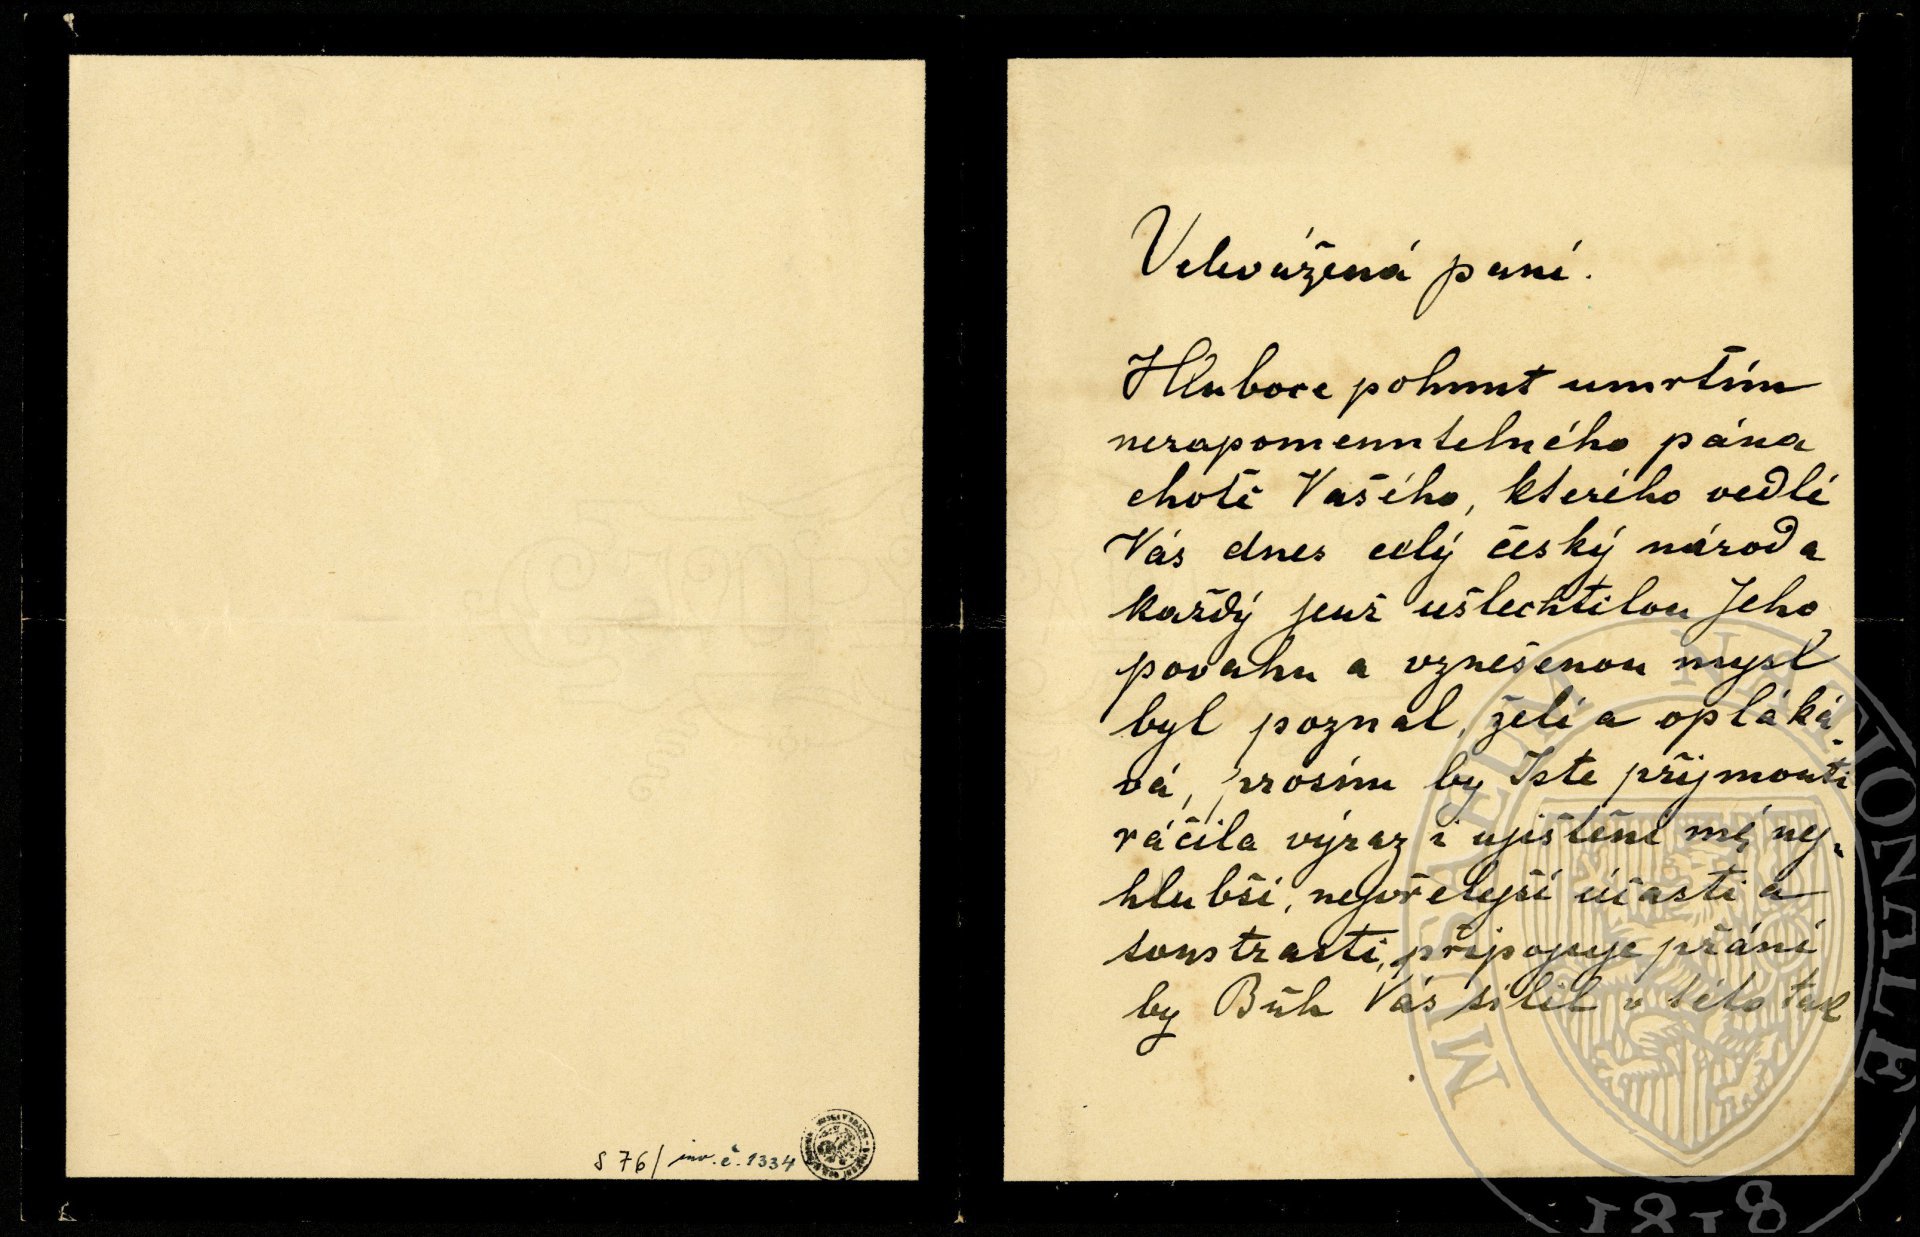 S 76/ inv. č. 1334
Velevážená paní.
Hluboce pohnut umrtím
nezapomenutelného pána
chotě Vašého, kterého vedlé
Vás dnes celý český národ a
každý jenž ušlechtilou Jeho
povahu a vznešenou mysl
byl poznal, želí a opláká-
vá, prosím by Jste přijmouti
ráčila výraz i ujištění mé nej-
hlubší, nejvřelejší účasti a
soustrasti, připojuje přání
by Bůh Vás sílil v této tak
MUSEUM NATIONALE
1818